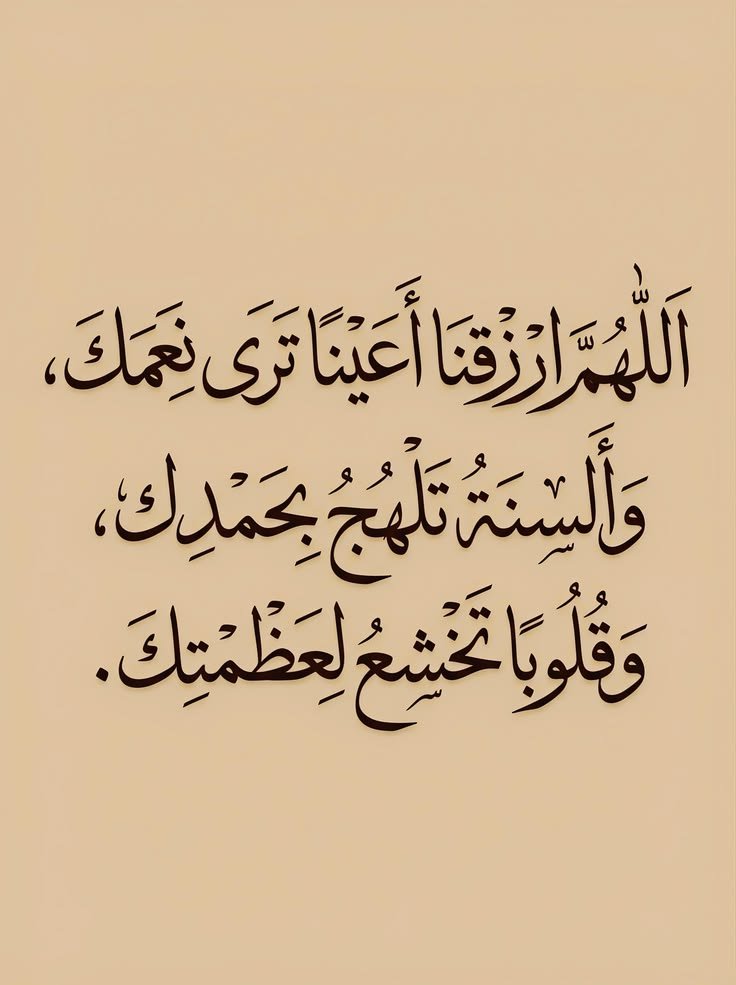 اَللّٰهُمَّ ارْزُقْنَا أَعَيْنًا تَرَى نِعَمَكَ،
وَأَلسِنَةُ تَلْهُجُ بِحَمْدِك،
وَقُلُوبًا تَخْشِعُ لِعَظْمْتِكَ.